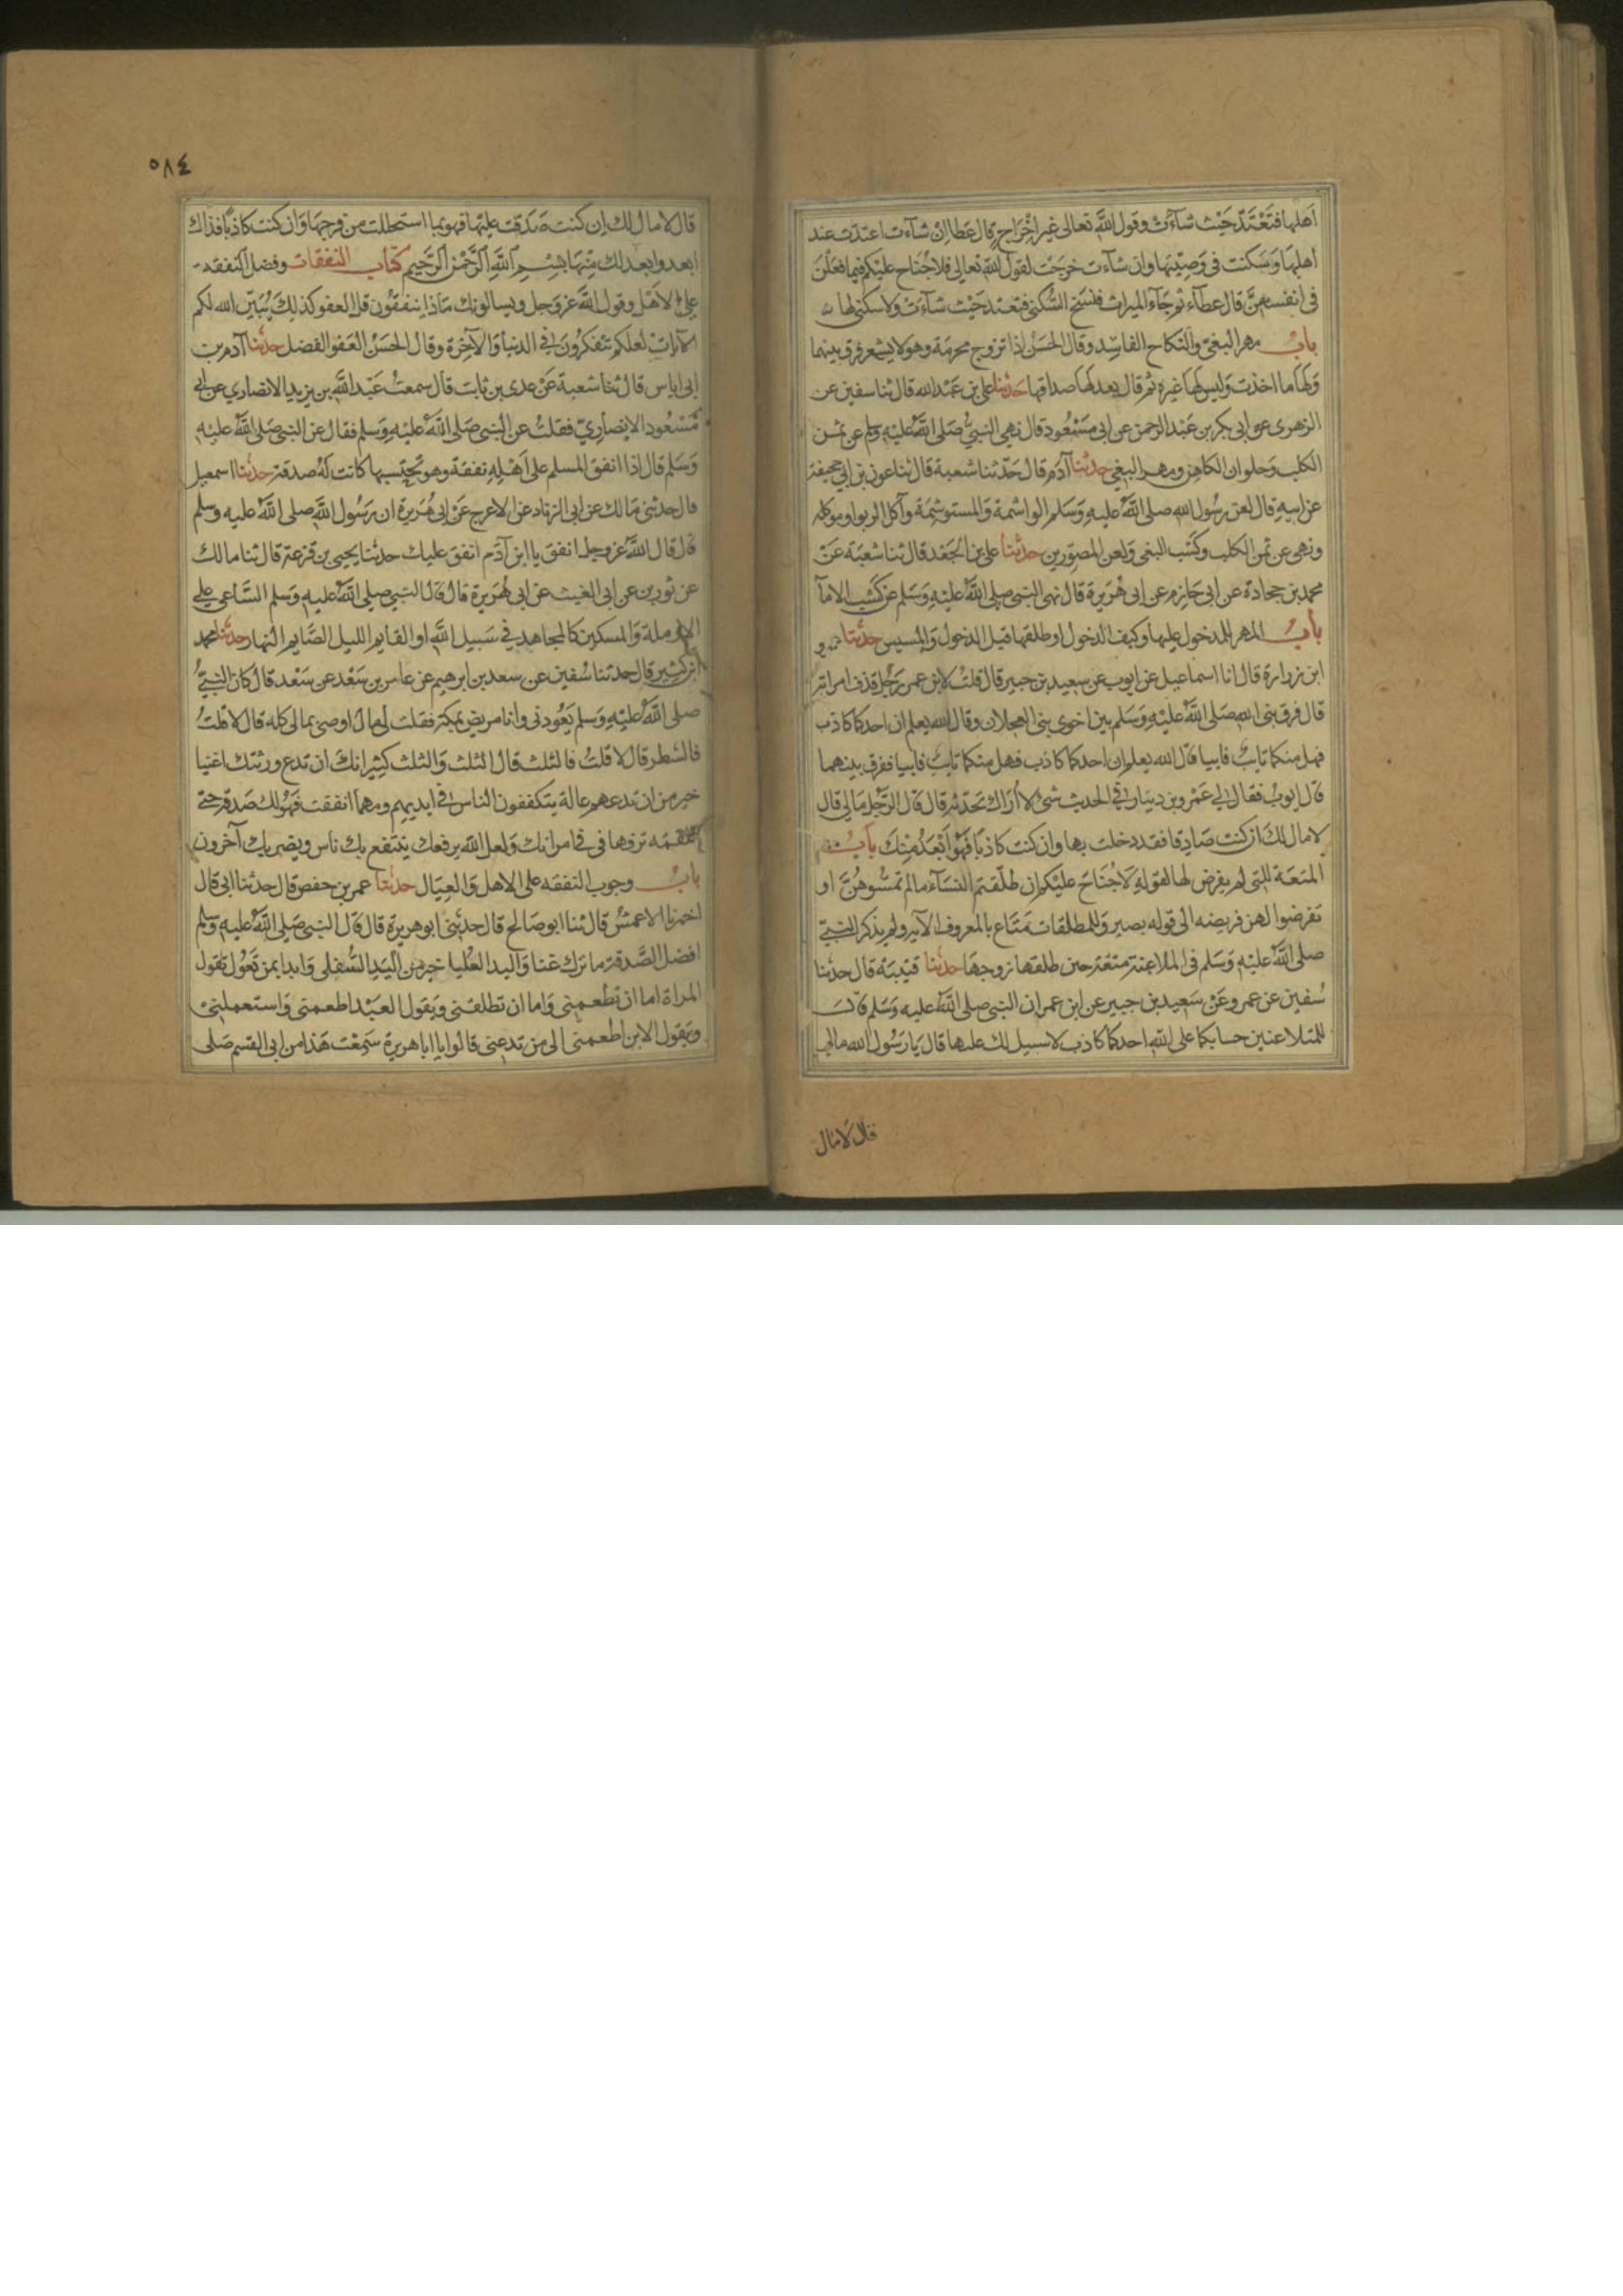 اهلها فتعتد حيث شاءت وقول الله تعالى غير اخراج قال عطا ان شاءت اعتدت عند
اهلها وسكنت فى وصيتها وان شاءت خرجت لقول الله تعالى فلا جناح عليكم فيما فعلن
فى انفسهن قال عطاء ثم جاء الميراث فنسخ السكنى فتعتد حيث شاءت ولا سكنى لها
باب مهر البغي والنكاح الفاسد وقال الحسن اذا تزوج محرمة وهو لا يشعر فرق بينهما
ولها ما اخذت وليس لها غيره ثم قال بعد لها صداقها حدثنا على بن عبد الله قال ثنا سفين عن
الزهرى عن ابى بكر بن عبد الرحمن عن ابى مسعود قال نهى النبى صلى الله عليه وسلم عن ثمن
الكلب وحلوان الكاهن ومهر البغي حدثنا آدم قال حدثنا شعبة قال ثنا عون بن ابى جحيفة
عن ابيه قال لعن رسول الله صلى الله عليه وسلم الواشمة والمستوشمة وآكل الربوا وموكله
ونهى عن ثمن الكلب وكسب البغي ولعن المصورين حدثنا على بن الجعد قال ثنا شعبة عن
محمد بن جحادة عن ابى حازم عن ابى هريرة قال نهى النبى صلى الله عليه وسلم عن كسب الاماء
باب المهر للمدخول عليها وكيف الدخول او طلقها قبل الدخول والمسيس حدثنا عمرو
ابن زرارة قال انا اسماعيل عن ايوب عن سعيد بن جبير قال قلت لابن عمر رجل قذف امراته
قال فرق نبى الله صلى الله عليه وسلم بين اخوى بنى العجلان وقال الله يعلم ان احدكما كاذب
فهل منكما تايب فابيا قال الله يعلم ان احدكما كاذب فهل منكما تايب فابيا ففرق بينهما
قال ايوب فقال لى عمرو بن دينار فى الحديث شئ لا أراك تحدثه قال قال الرجل مالى قال
لا مال لك ان كنت صادقا فقد دخلت بها وان كنت كاذبا فهو أبعد منك باب
المتعة للتى لم يفرض لها لقوله لا جناح عليكم ان طلقتم النساء ما لم تمسوهن او
تفرضوا لهن فريضه الى قوله بصير وللمطلقات متاع بالمعروف الآيه ولم يذكر النبى
صلى الله عليه وسلم فى الملاعنة متعة حين طلقها زوجها حدثنا قتيبة قال حدثنا
سفين عن عمرو عن سعيد بن جبير عن ابن عمر ان النبى صلى الله عليه وسلم قال
للمتلاعنين حسابكما على الله احدكما كاذب لا سبيل لك عليها قال يا رسول الله مالى
قال لا مال
٥٨٤
قال لا مال لك ان كنت صدقت عليها فهو بما استحللت من فرجها وان كنت كاذبا فذاك
ابعد وابعد لك منها بسم الله الرحمن الرحيم كتاب النفقات وفضل النفقه
على الاهل وقول الله عز وجل ويسالونك ماذا ينفقون قل العفو كذلك يبين الله لكم
الآيات لعلكم تتفكرون فى الدنيا والآخرة وقال الحسن العفو الفضل حدثنا آدم بن
ابى اياس قال ثنا شعبة عن عدى بن ثابت قال سمعت عبد الله بن يزيد الانصاري عن ابى
مسعود الانصاري فقلت عن النبى صلى الله عليه وسلم فقال عن النبى صلى الله عليه
وسلم قال اذا انفق المسلم على اهله نفقة وهو يحتسبها كانت له صدقة حدثنا اسمعيل
قال حدثنى مالك عن ابى الزناد عن الاعرج عن ابى هريرة ان رسول الله صلى الله عليه وسلم
قال قال الله عز وجل انفق يا ابن آدم انفق عليك حدثنا يحيى بن قزعة قال ثنا مالك
عن ثور بن عن ابى الغيث عن ابى هريرة قال قال النبى صلى الله عليه وسلم الساعي على
الارملة والمسكين كالمجاهد فى سبيل الله او القايم الليل الصايم النهار حدثنا محمد
ابن كثير قال حدثنا سفين عن سعد بن ابرهيم عن عامر بن سعد عن سعد قال كان النبى
صلى الله عليه وسلم يعودنى وانا مريض بمكة فقلت لى مال اوصى بمالى كله قال لا قلت
فالشطر قال لا قلت فالثلث قال الثلث والثلث كثير انك ان تدع ورثتك اغنيا
خير من ان تدعهم عالة يتكففون الناس فى ايديهم ومهما انفقت فهو لك صدقة حتى
اللقمه ترفعها فى فى امراتك ولعل الله يرفعك ينتفع بك ناس ويضر بك آخرون
باب وجوب النفقه على الاهل والعيال حدثنا عمر بن حفص قال حدثنا ابى قال
اخبرنا الاعمش قال ثنا ابو صالح قال حدثنى ابو هريرة قال قال النبى صلى الله عليه وسلم
افضل الصدقة ما ترك غنا واليد العليا خير من اليد السفلى وابدا بمن تعول تقول
المراة اما ان تطعمنى واما ان تطلقنى ويقول العبد اطعمنى واستعملنى
ويقول الابن اطعمنى الى من تدعنى قالوا يا ابا هريرة سمعت هذا من ابى القسم صلى